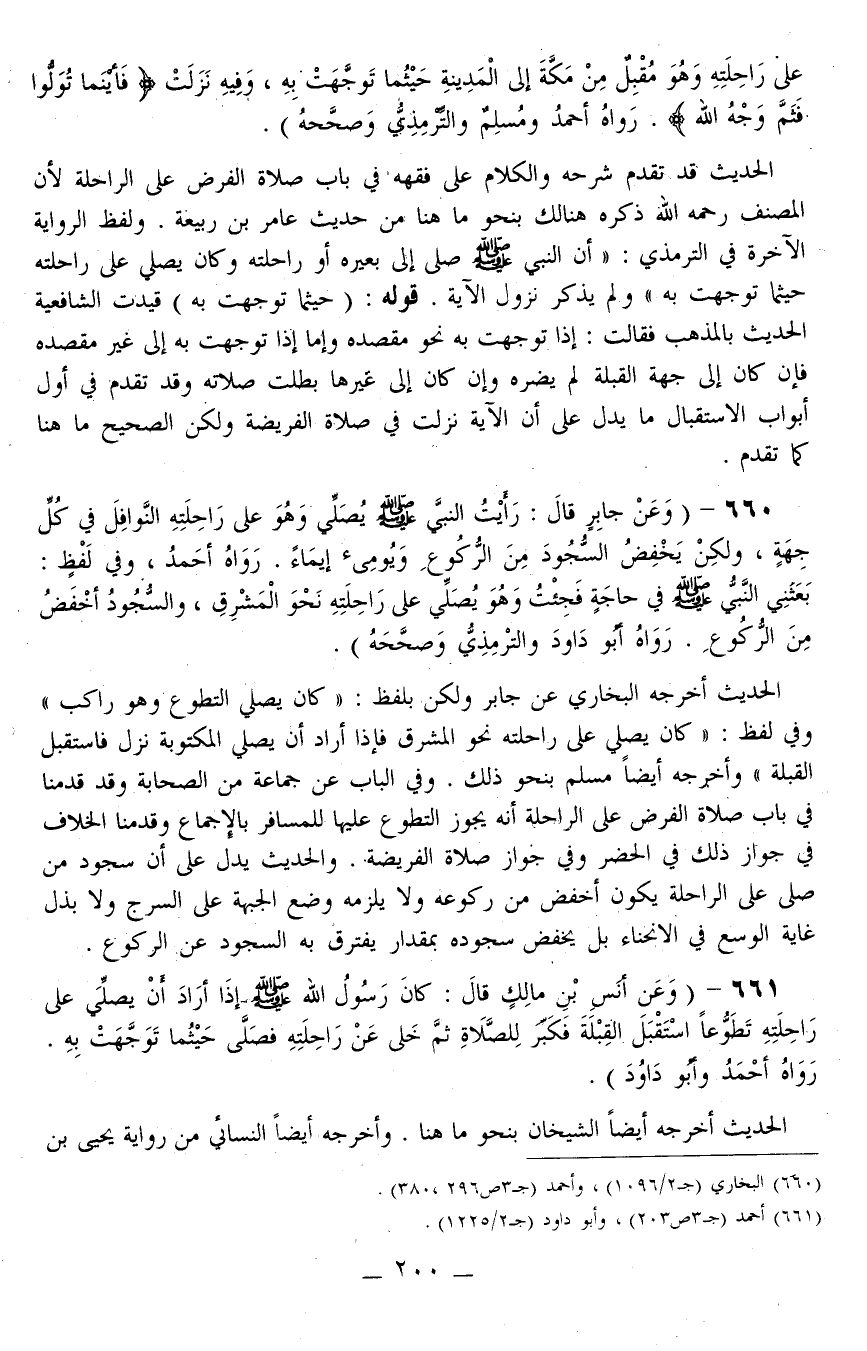 على رَاحِلَتِهِ وَهُوَ مُقْبِلٌ مِنْ مَكَّةَ إلى الْمَدِينةِ حَيْثُما تَوجَّهَتْ بِهِ ، وَفِيهِ نَزَلَتْ ﴿ فَأَيْنَما تُوَلُّوا
فَثَمَّ وَجْهُ الله ﴾ . رَواهُ أحمدُ ومُسلِمٌ والتِّرْمِذِيُّ وَصحَّحهُ ) .
الحديث قد تقدم شرحه والكلام على فقهه في باب صلاة الفرض على الراحلة لأن
المصنف رحمه الله ذكره هنالك بنحو ما هنا من حديث عامر بن ربيعة . ولفظ الرواية
الآخرة في الترمذي : « أن النبي ﷺ صلى إلى بعيره أو راحلته وكان يصلي على راحلته
حيثما توجهت به » ولم يذكر نزول الآية . قوله : ( حيثما توجهت به ) قيدت الشافعية
الحديث بالمذهب فقالت : إذا توجهت به نحو مقصده وإما إذا توجهت به إلى غير مقصده
فإن كان إلى جهة القبلة لم يضره وإن كان إلى غيرها بطلت صلاته وقد تقدم في أول
أبواب الاستقبال ما يدل على أن الآية نزلت في صلاة الفريضة ولكن الصحيح ما هنا
كما تقدم .
٦٦٠ – ( وَعَنْ جابِرٍ قالَ : رَأَيْتُ النبيَّ ﷺ يُصَلِّي وَهُوَ على رَاحِلَتِهِ النَّوافِلَ في كُلِّ
جِهَةٍ ، ولكِنْ يَخْفِضُ السُّجُودَ مِنَ الرُّكوعِ وَيُومِىء إيمَاءً . رَوَاهُ أحَمدُ ، وفي لَفْظٍ :
بَعَثَنِي النَّبيُّ ﷺ في حاجَةٍ فَجِئْتُ وَهُوَ يُصَلِّي على رَاحِلَتِهِ نَحْوَ الْمَشْرِقِ ، والسُّجُودُ أخْفَضُ
مِنَ الرُّكُوعِ . رَوَاهُ أَبُو دَاودَ والترْمِذِيُّ وَصَحَّحَهُ ) .
الحديث أخرجه البخاري عن جابر ولكن بلفظ : « كان يصلي التطوع وهو راكب »
وفي لفظ : « كان يصلي على راحلته نحو المشرق فإذا أراد أن يصلي المكتوبة نزل فاستقبل
القبلة » وأخرجه أيضاً مسلم بنحو ذلك . وفي الباب عن جماعة من الصحابة وقد قدمنا
في باب صلاة الفرض على الراحلة أنه يجوز التطوع عليها للمسافر بالإجماع وقدمنا الخلاف
في جواز ذلك في الحضر وفي جواز صلاة الفريضة . والحديث يدل على أن سجود من
صلى على الراحلة يكون أخفض من ركوعه ولا يلزمه وضع الجبهة على السرج ولا بذل
غاية الوسع في الانحناء بل يخفض سجوده بمقدار يفترق به السجود عن الركوع .
٦٦١ – ( وَعَن أنَسِ بْنِ مالِكٍ قالَ : كانَ رَسُولُ الله ﷺ إذَا أرَادَ أَنْ يصلِّيَ على
رَاحِلَتِهِ تَطَوُّعاً اسْتَقْبَلَ القِبْلَةَ فَكبَّرَ لِلصَّلَاةِ ثمَّ خَلى عَنْ رَاحِلَتِهِ فصَلَّى حَيْثُما تَوَجَّهَتْ بِهِ .
رَوَاهُ أحْمَدُ وأَبُو دَاوُدَ ) .
الحديث أخرجه أيضاً الشيخان بنحو ما هنا . وأخرجه أيضاً النسائي من رواية يحيى بن
(٦٦٠) البخاري (جـ١٠٩٦/٢) ، وأحمد (جـ٣ص٢٩٦ ،٣٨٠) .
(٦٦١) أحمد (جـ٣ص٢٠٣) ، وأبو داود (جـ١٢٢٥/٢) .
— ٢٠٠ —